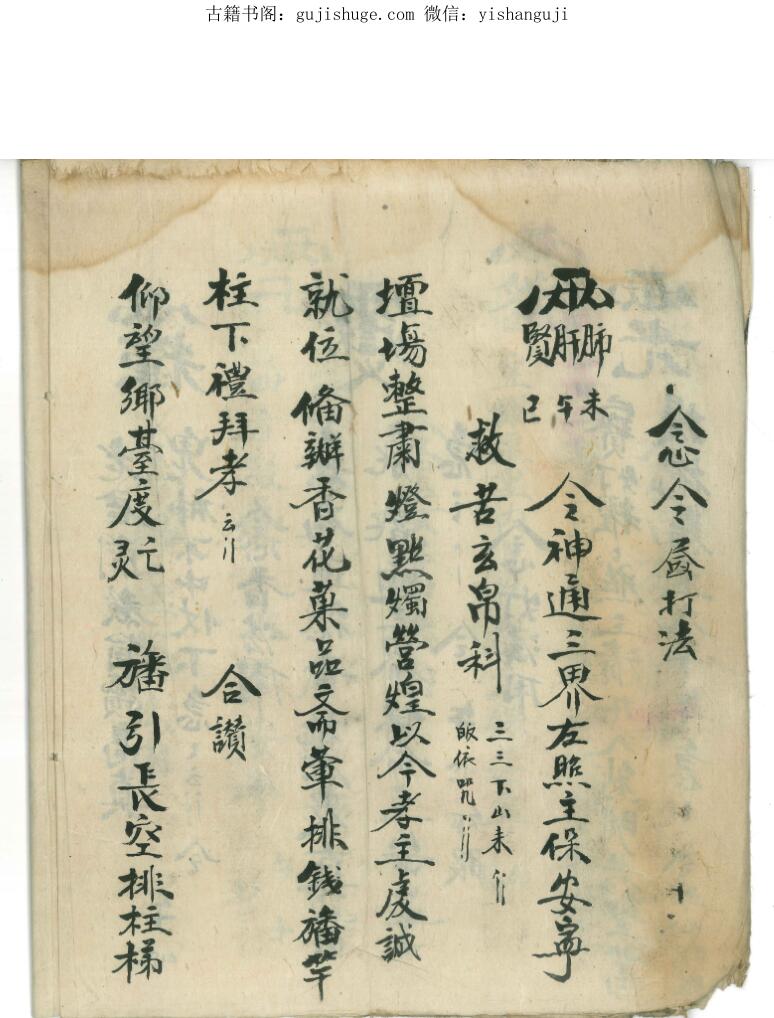 古籍书阁：gujishuge.com 微信：yishanguji
念令 打法
肺肝賢
未午巳
令神通三界左照主保安寧
救苦玄帛科
三三下山来
皈依咒
壇場整肅燈點燭營煌以今孝主虔誠
就位俻辦香花菓品斋葷排錢旛竿
柱下禮拜孝云
合讃
仰望鄉臺度亡灵
旛引長空排柱梯